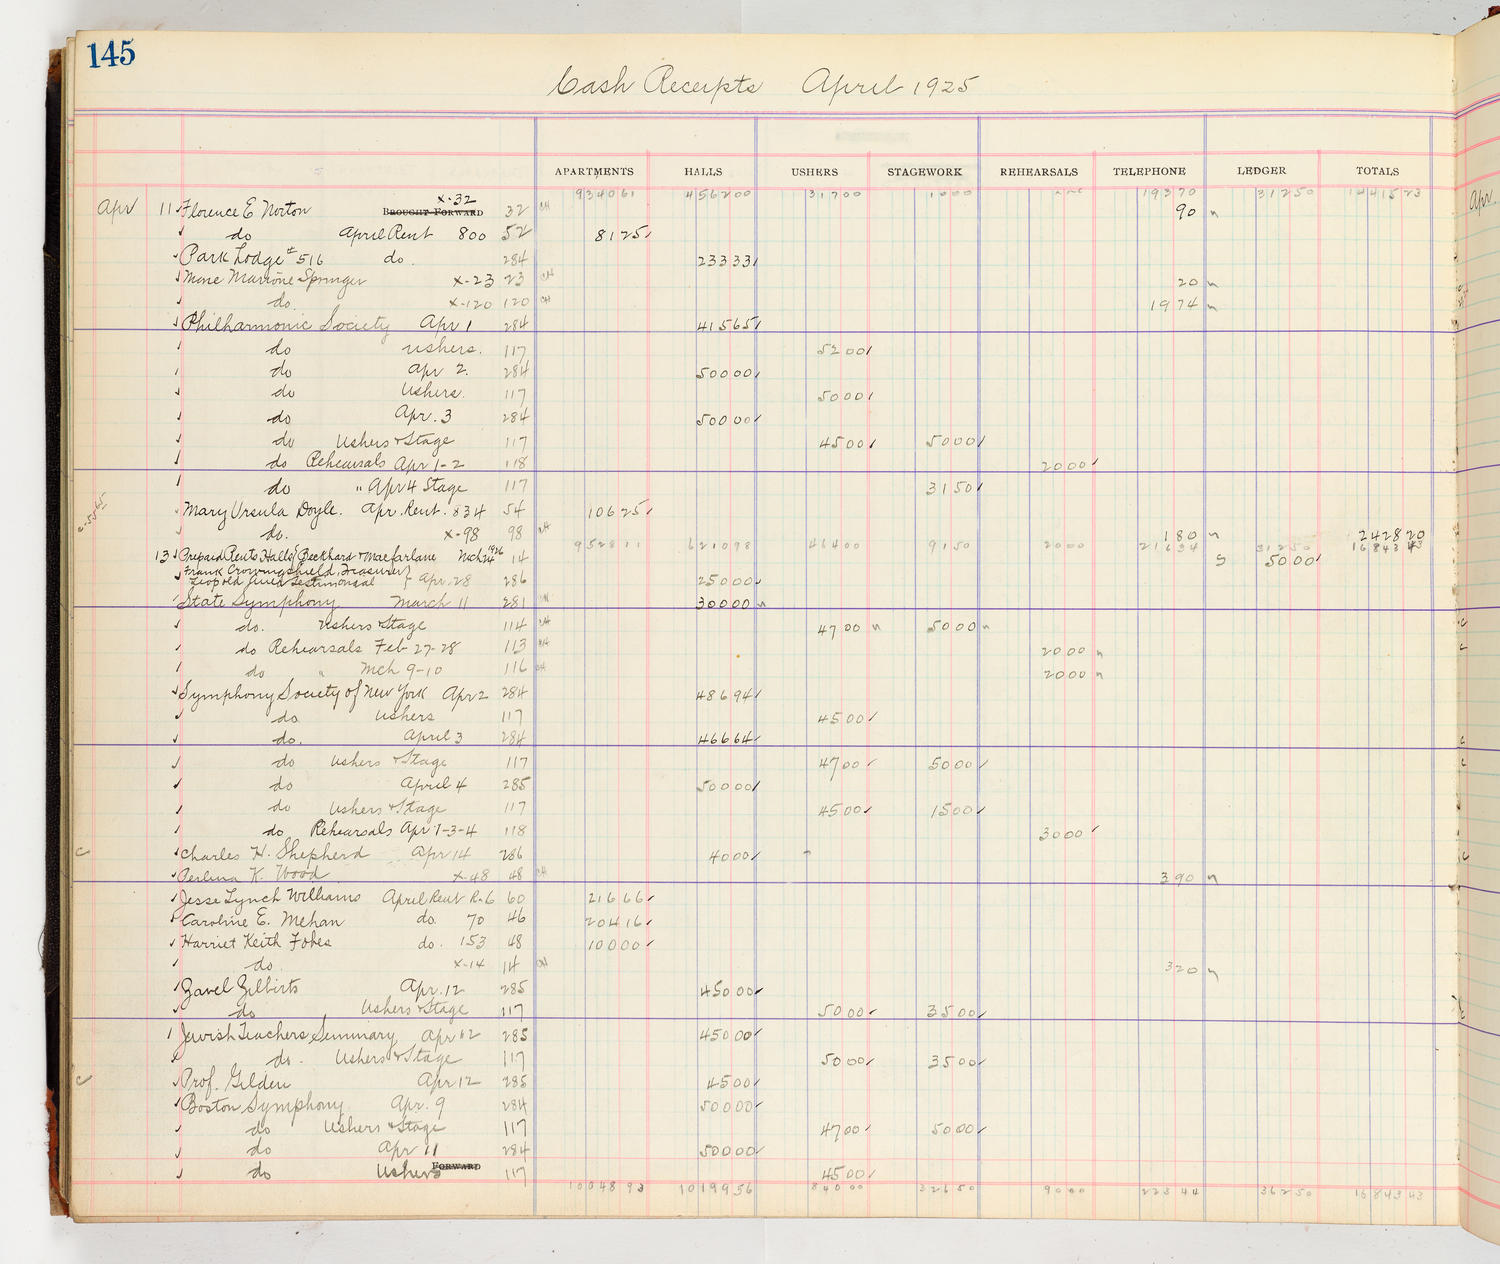 145
Cash Receipts April 1925
APARTMENTS HALLS USHERS STAGEWORK REHEARSALS TELEPHONE LEDGER TOTALS
934061 456200 31700 1000 19370 31250
Apr 11 Florence E Norton X-32 BROUGHT FORWARD 32 CH 90
do April Rent 800 52 8125
Park Lodge #516 do. 284 23333
Marrone Springer X-23 23 CH 20
do X-120 120 CH 1974
Philharmonic Society Apr 1 284 41565
do Ushers. 117 5200
do Apr 2. 284 50000
do Ushers. 117 5000
do Apr. 3 284 50000
do Ushers & Stage 117 4500 5000
do Rehearsals Apr 1-2 118 2000
do " Apr 4 Stage 117 3150
Mary Ursula Doyle. Apr. Rent. 834 54 10625
do. X-98 98 CH 180 242820
952811 621098 46400 9150 2000 21634 31250 1684343
13 Prepaid Rents Halls Beckhard & Macfarlane Mch 24 1926 14 S 5000
Frank Crowningshield, Treasurer
Leopold Auer Testimonial Apr. 28 286 25000
State Symphony March 11 281 CH 30000
do. Ushers & Stage 114 CH 4700 5000
do Rehearsals Feb 27-28 113 CH 2000
do " Mch 9-10 116 CH 2000
Symphony Society of New York Apr 2 284 48694
do Ushers 117 4500
do. April 3 284 46664
do Ushers & Stage 117 4700 5000
do April 4 285 50000
do Ushers & Stage 117 4500 1500
do Rehearsals Apr 1-3-4 118 3000
C Charles H. Shepherd Apr 14 286 4000
Perlina K. Wood X-48 48 CH 390
Jesse Lynch Williams April Rent R-6 60 21666
Caroline E. Mehan do. 70 46 20416
Harriet Keith Fobes do. 153 48 10000
do. X-14 14 CH 320
Zavel Zilberts Apr. 12 285 45000
do Ushers & Stage 117 5000 3500
Jewish Teachers Seminary Apr 12 285 45000
do. Ushers & Stage 117 5000 3500
C Prof. Gilden Apr 12 285 4500
Boston Symphony Apr. 9 284 50000
do Ushers & Stage 117 4700 5000
do Apr 11 284 50000
do Ushers FORWARD 117 4500
1004893 1019956 84000 32650 9000 22344 36250 1684343
Apr.